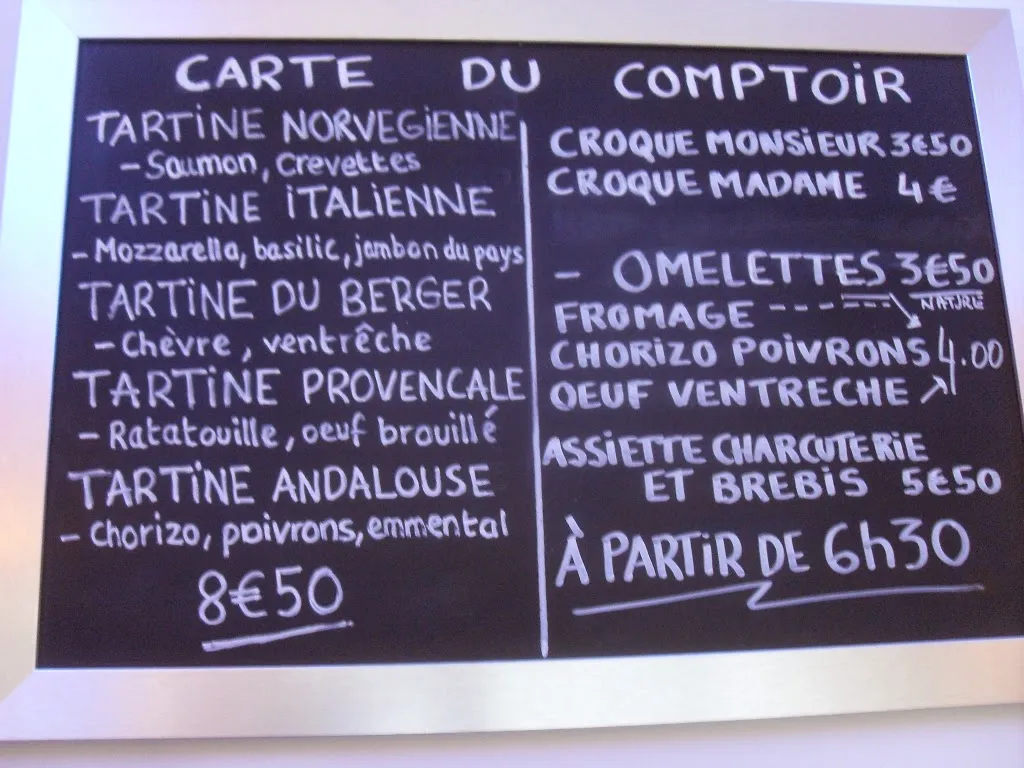 CARTE DU COMPTOIR
TARTINE NORVEGIENNE
- Saumon, crevettes
TARTINE ITALIENNE
- Mozzarella, basilic, jambon du pays
TARTINE DU BERGER
- Chèvre, ventrêche
TARTINE PROVENCALE
- Ratatouille, oeuf brouillé
TARTINE ANDALOUSE
- Chorizo, poivrons, emmental
8€50
CROQUE MONSIEUR 3€50
CROQUE MADAME 4€
- OMELETTES 3€50
NATURE
FROMAGE
CHORIZO POIVRONS 4.00
OEUF VENTRECHE
ASSIETTE CHARCUTERIE
ET BREBIS 5€50
À PARTIR DE 6h30